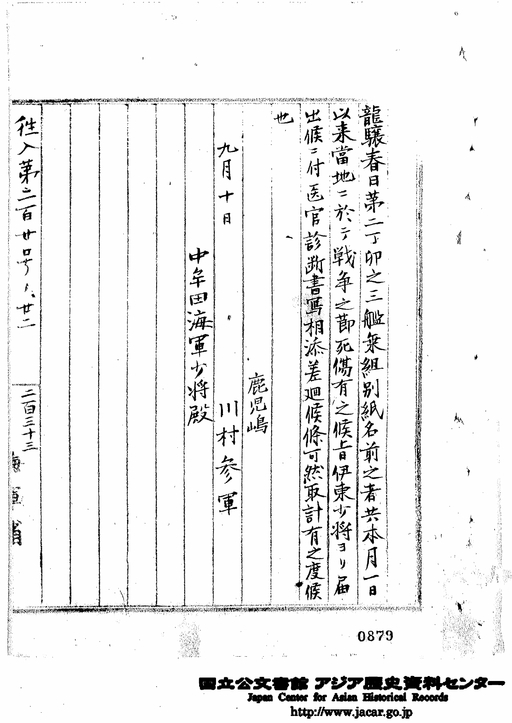 龍驤春日第二丁卯之三艦乗組別紙名前之者共本月一日
以来當地ニ於テ戦争之節死傷有之候旨伊東少将ヨリ届
出候ニ付医官診断書寫相添差廻候條可然取計有之度候
也
鹿児嶋
九月十日 川村参軍
中牟田海軍少将殿
往入第二百廿号ノ廿二
二百三十三
海軍省
0879
国立公文書館 アジア歴史資料センター
Japan Center for Asian Historical Records
http://www.jacar.go.jp